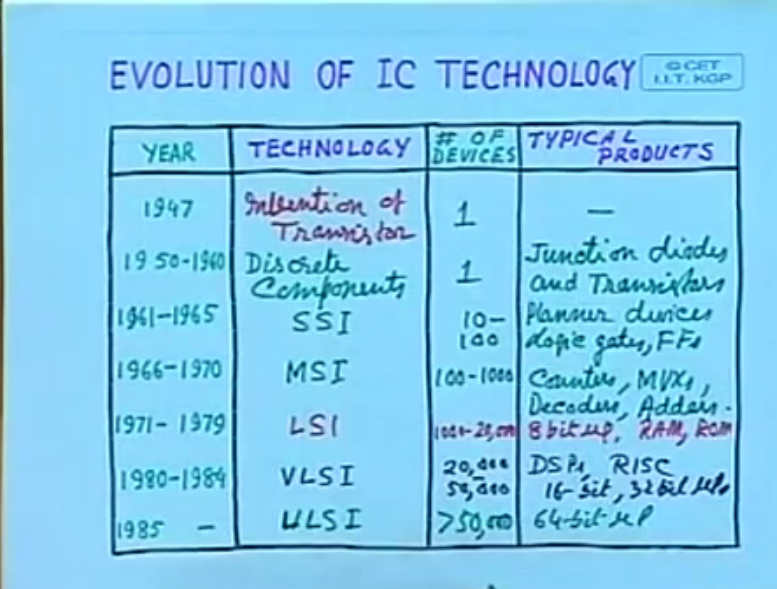 EVOLUTION OF IC TECHNOLOGY
© CET
I.I.T. KGP
YEAR TECHNOLOGY # OF DEVICES TYPICAL PRODUCTS
1947 Invention of Transistor 1 —
1950-1960 Discrete Components 1 Junction diodes and Transistors
1961-1965 SSI 10-100 Planner devices Logic gates, FFs
1966-1970 MSI 100-1000 Counters, MUXs, Decoders, Adders.
1971-1979 LSI 1000-20,000 8 bit μp, RAM, ROM
1980-1984 VLSI 20,000 50,000 DSPs, RISC 16-bit, 32 bit μPs
1985 - ULSI >50,000 64-bit μP